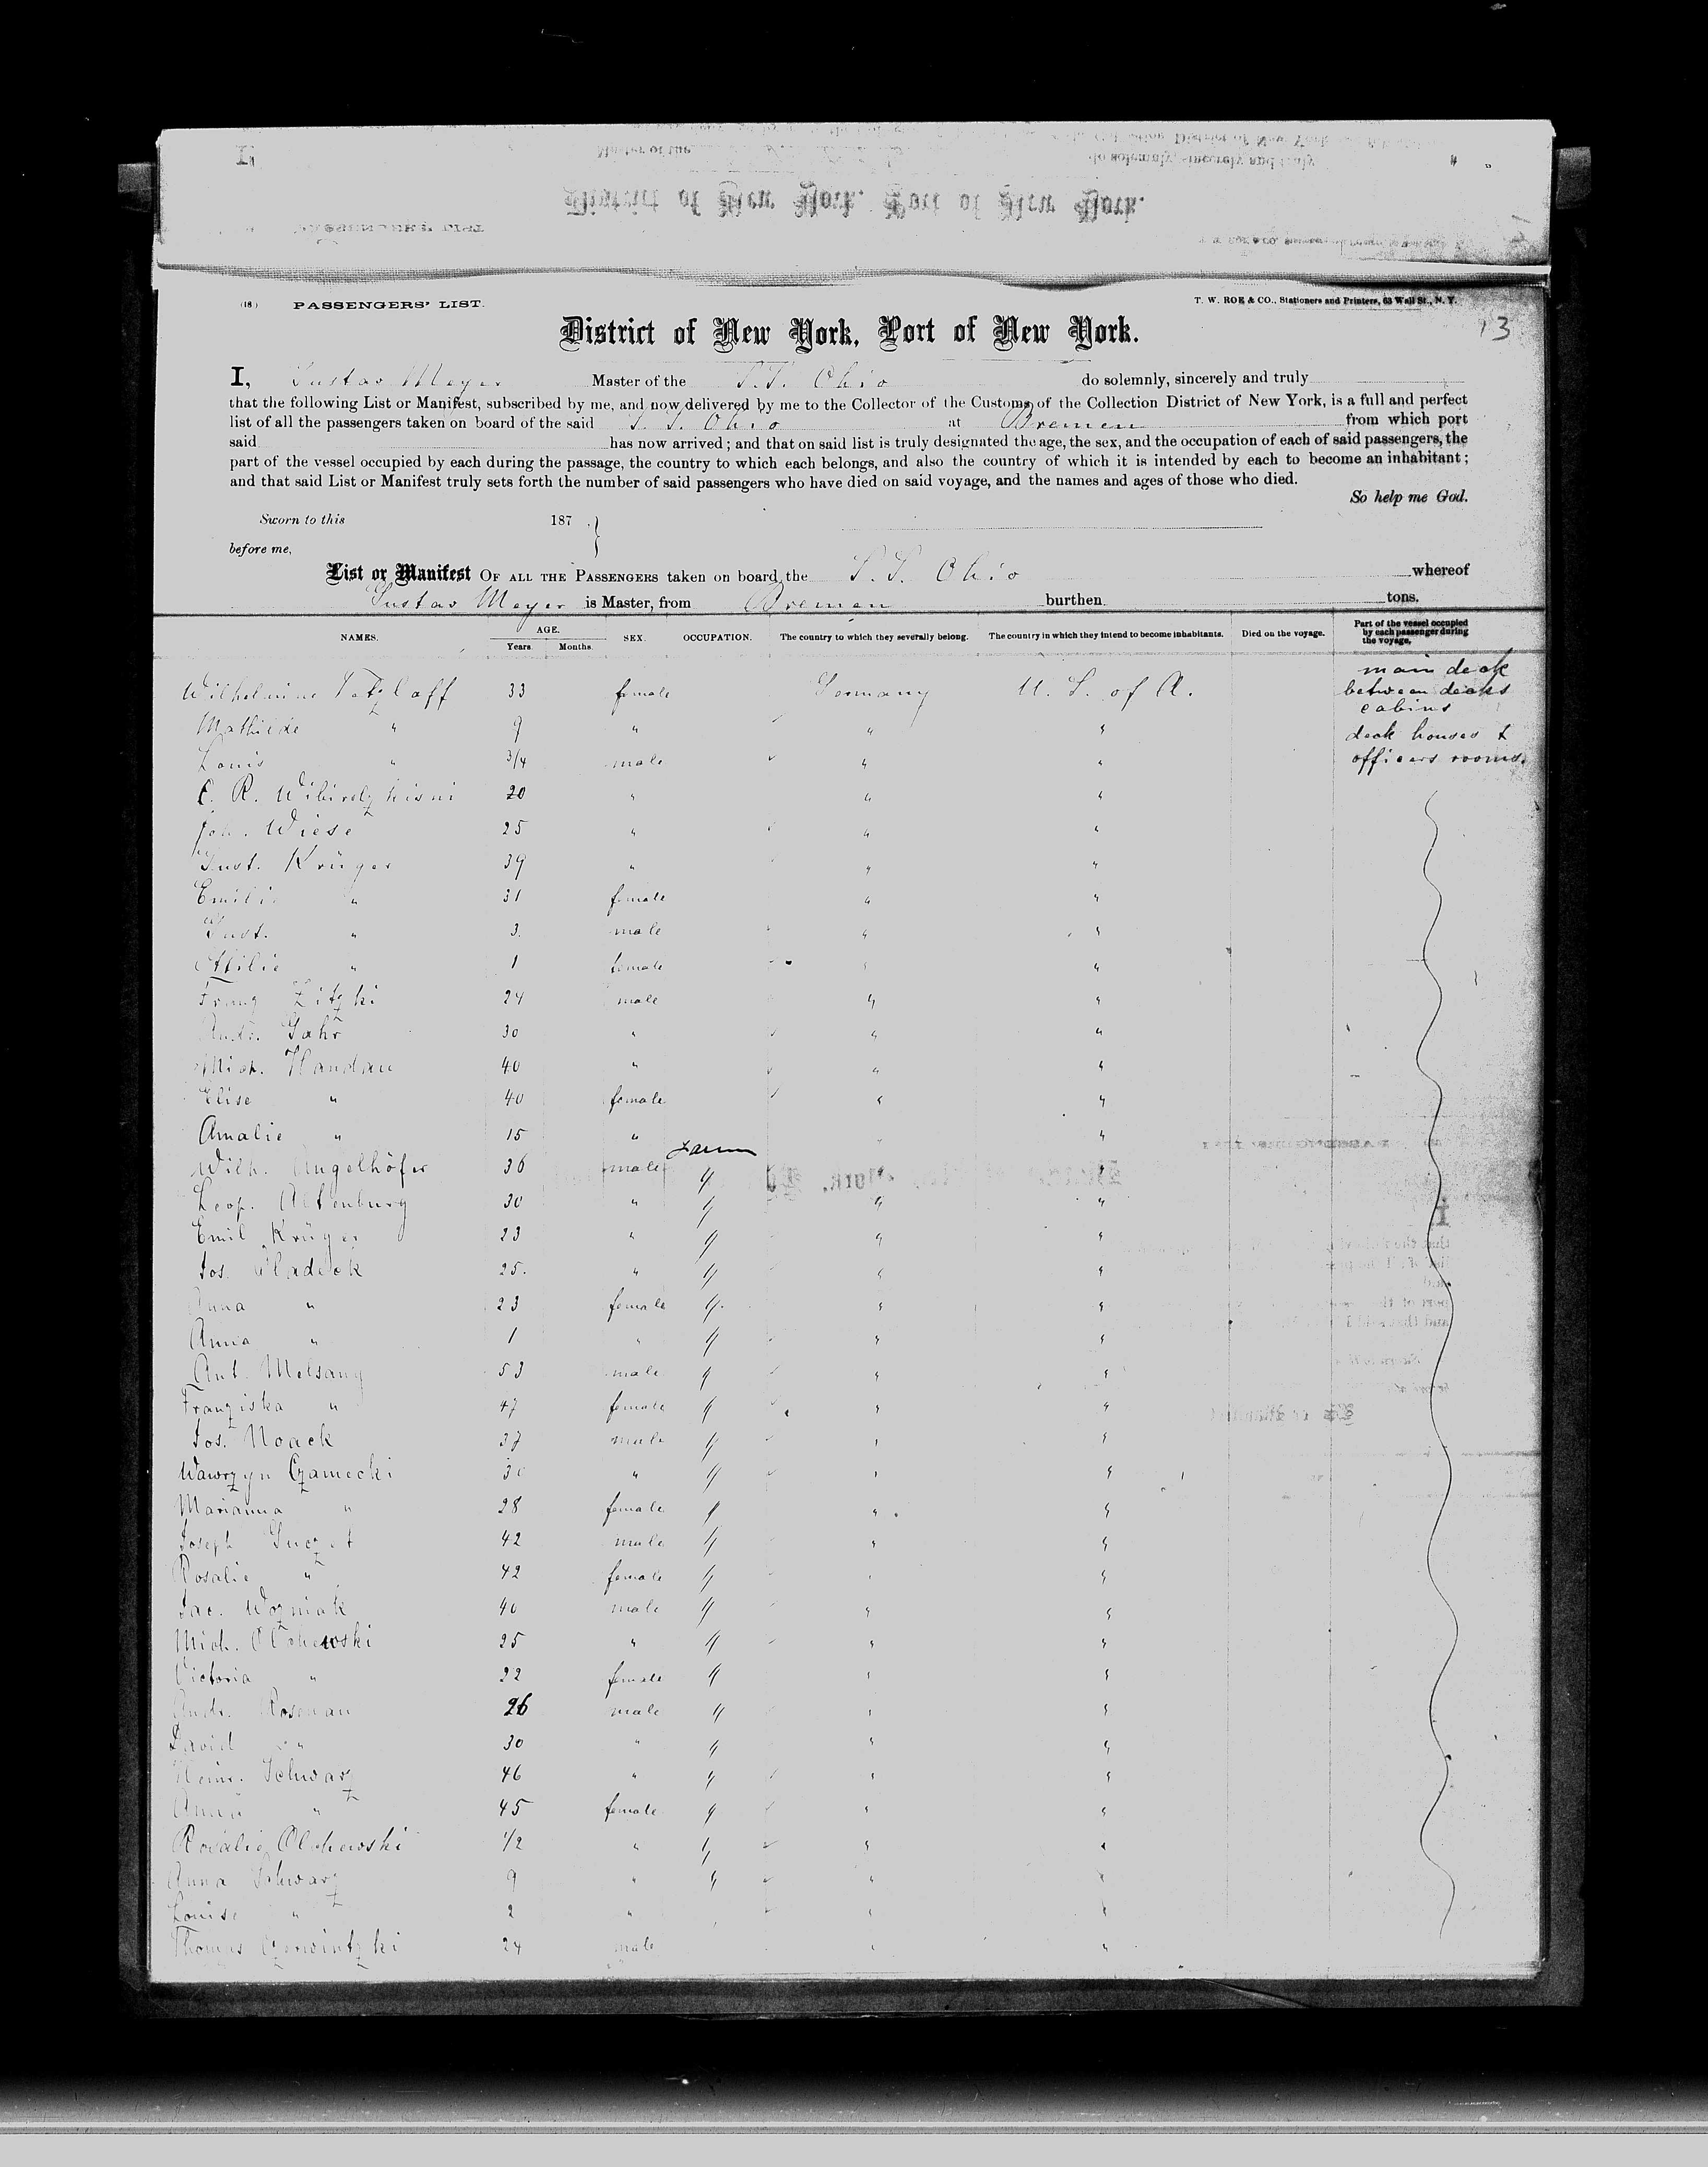 (18) PASSENGERS' LIST. T. W. ROE & CO., Stationers and Printers, 63 Wall St., N. Y.
13
District of New York, Port of New York.
I, Gustav Meyer Master of the S.S. Ohio do solemnly, sincerely and truly
that the following List or Manifest, subscribed by me, and now delivered by me to the Collector of the Customs of the Collection District of New York, is a full and perfect
list of all the passengers taken on board of the said S. S. Ohio at Bremen from which port
said has now arrived; and that on said list is truly designated the age, the sex, and the occupation of each of said passengers, the
part of the vessel occupied by each during the passage, the country to which each belongs, and also the country of which it is intended by each to become an inhabitant;
and that said List or Manifest truly sets forth the number of said passengers who have died on said voyage, and the names and ages of those who died.
So help me God.
Sworn to this 187
before me,
List or Manifest OF ALL THE PASSENGERS taken on board the S. S. Ohio whereof
Gustav Meyer is Master, from Bremen burthen tons.
NAMES. AGE. Years. Months. SEX. OCCUPATION. The country to which they severally belong. The country in which they intend to become inhabitants. Died on the voyage. Part of the vessel occupied by each passenger during the voyage.
main deck
Wilhelmine Tetzlaff 33 female Germany U. S. of A. between decks
cabins
Mathilde " 9 " " " deck houses &
Louis " 3/4 male " " officers rooms.
C. R. 20 " " "
Joh. Wiese 25 " " "
Gust. Krüger 39 " " "
Emilie " 31 female " "
Gust. " 3. male " "
Ottilie " 1 female " "
Franz Zitzki 24 male " "
Andr. Gahr 30 " " "
Mich. Handau 40 " " "
Elise " 40 female " "
Amalie " 15 " " "
Wilh. Angelhöfer 36 male Farm " "
Leop. Altenburg 30 " " " "
Emil Krüger 23 " " " "
Jos. Vladeck 25. " " " "
Anna " 23 female " " "
Anna " 1 " " " "
Ant. Melsang 53 male " " "
Franziska " 47 female " " "
Jos. Noack 37 male " " "
Wawrzyn Czarnecki 30 " " " "
Marianna " 28 female " " "
Joseph 42 male " " "
Rosalie " 42 female " " "
Jac. Wozniak 40 male " " "
Mich. Olchewski 25 " " " "
Victoria " 22 female " " "
Andr. Rosenau 26 male " " "
David " 30 " " " "
Heinr. Schwarz 46 " " " "
Anna " 45 female " " "
Rosalie Olchewski 1/2 " " " "
Anna Schwarz 9 " " " "
Louise " 2 " " "
Thomas Czerwintzki 24 male " "